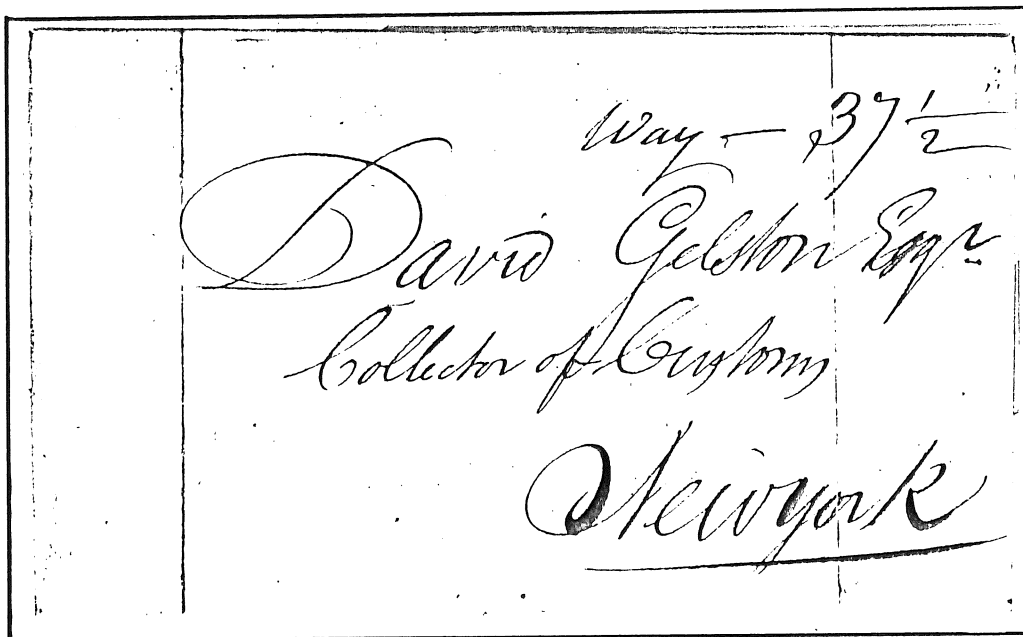 Way — 37 1/2
David Gelston Esqr
Collector of Customs
Newyork